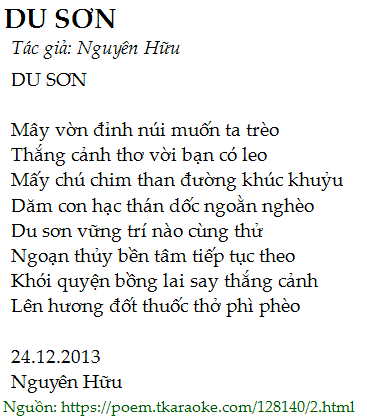 DU SƠN
Tác giả: Nguyên Hữu
DU SƠN
Mây vờn đỉnh núi muốn ta trèo
Thắng cảnh thơ vời bạn có leo
Mấy chú chim than đường khúc khuỷu
Dăm con hạc thán dốc ngoằn nghèo
Du sơn vững trí nào cùng thử
Ngoạn thủy bền tâm tiếp tục theo
Khói quyện bồng lai say thắng cảnh
Lên hương đốt thuốc thở phì phèo
24.12.2013
Nguyên Hữu
Nguồn: https://poem.tkaraoke.com/128140/2.html